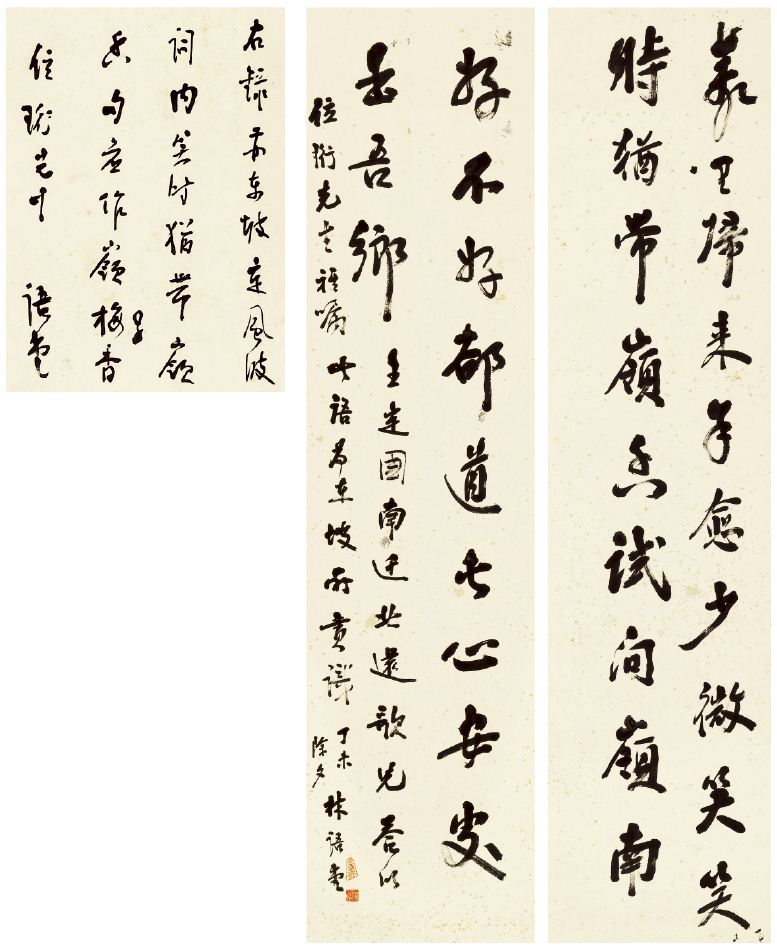 萬里歸來年愈少微笑笑
時猶帶嶺香試問嶺南
好不好都道此心安處
是吾鄉
王定國南遷北還歌兒答以
此語為東坡所賞識
丁未
除夕
林語堂
位珩先生雅囑
右錄蘇東坡定風波
詞內笑時猶帶嶺
香句應作嶺梅香
耳
位珩 語堂